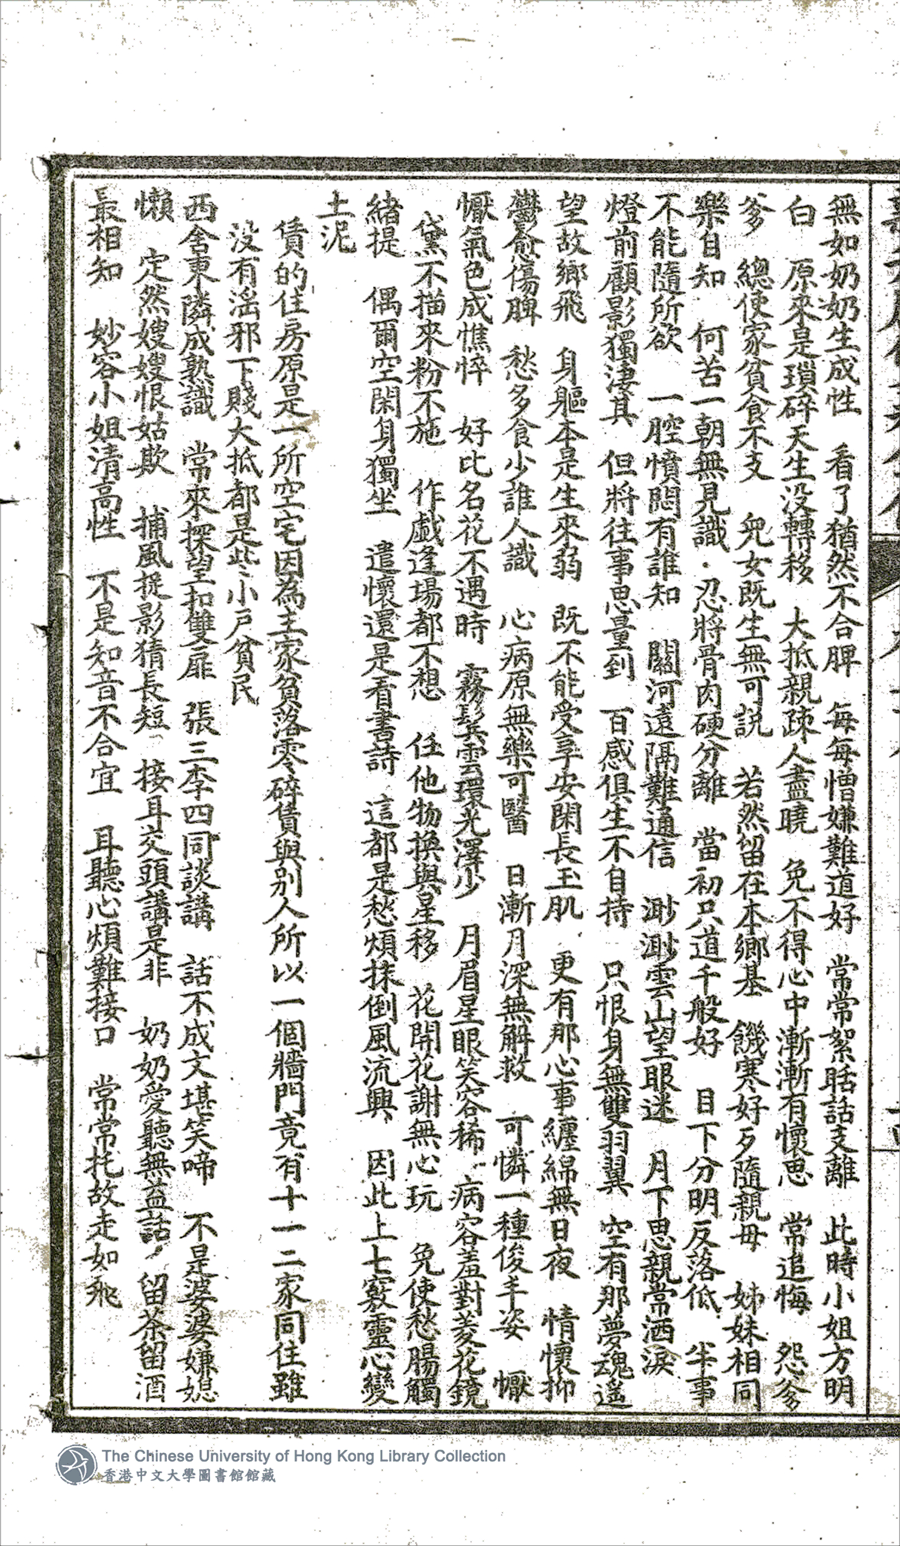 無如奶奶生成性　看了猶然不合脾　每每憎嫌難道好　常常絮聒話支離　此時小姐方明
白　原來是瑣碎天生没轉移　大抵親疎人盡曉　免不得心中漸漸有懷思　常追悔　怨爹
爹　總使家貧食不支　兒女既生無可説　若然留在本鄉基　饑寒好歹隨親母　姊妹相同
樂自知　何苦一朝無見識　忍將骨肉硬分離　當初只道千般好　日下分明反落低　半事
不能隨所欲　一腔憤悶有誰知　關河遠隔難通信　渺渺雲山望眼迷　月下思親常洒淚
燈前顧影獨淒其　但將往事思量到　百感俱生不自持　只恨身無雙羽翼　空有那夢魂遥
望故鄉飛　身軀本是生來弱　既不能受享安閑長玉肌　更有那心事纏綿無日夜　情懷抑
鬱愈傷脾　愁多食少誰人識　心病原無藥可醫　日漸月深無解救　可憐一種俊丰姿　懨
懨氣色成憔悴　好比名花不遇時　霧鬂雲環光澤少　月眉星眼笑容稀　病容羞對菱花鏡
黛不描來粉不施　作戲逢場都不想　任他物換與星移　花開花謝無心玩　免使愁腸觸
緒提　偶爾空閑身獨坐　遣懷還是看書詩　這都是愁煩抹倒風流興　因此上七竅靈心變
土泥
賃的住房原是一所空宅因為王家貧落零碎賃與别人所以一個牆門竟有十一二家同住雖
没有滛邪下賤大抵都是些小戸貧民
西舍東隣成熟識　常來探望扣雙扉　張三李四同談講　話不成文堪笑啼　不是婆婆嫌媳
懶　定然嫂嫂恨姑欺　捕風捉影猜長短　接耳交頭講是非　奶奶愛聽無益話　留茶留酒
最相知　妙容小姐清高性　不是知音不合宜　耳聽心煩難接口　常常托故走如飛
The Chinese University of Hong Kong Library Collection
香港中文大學圖書館館藏